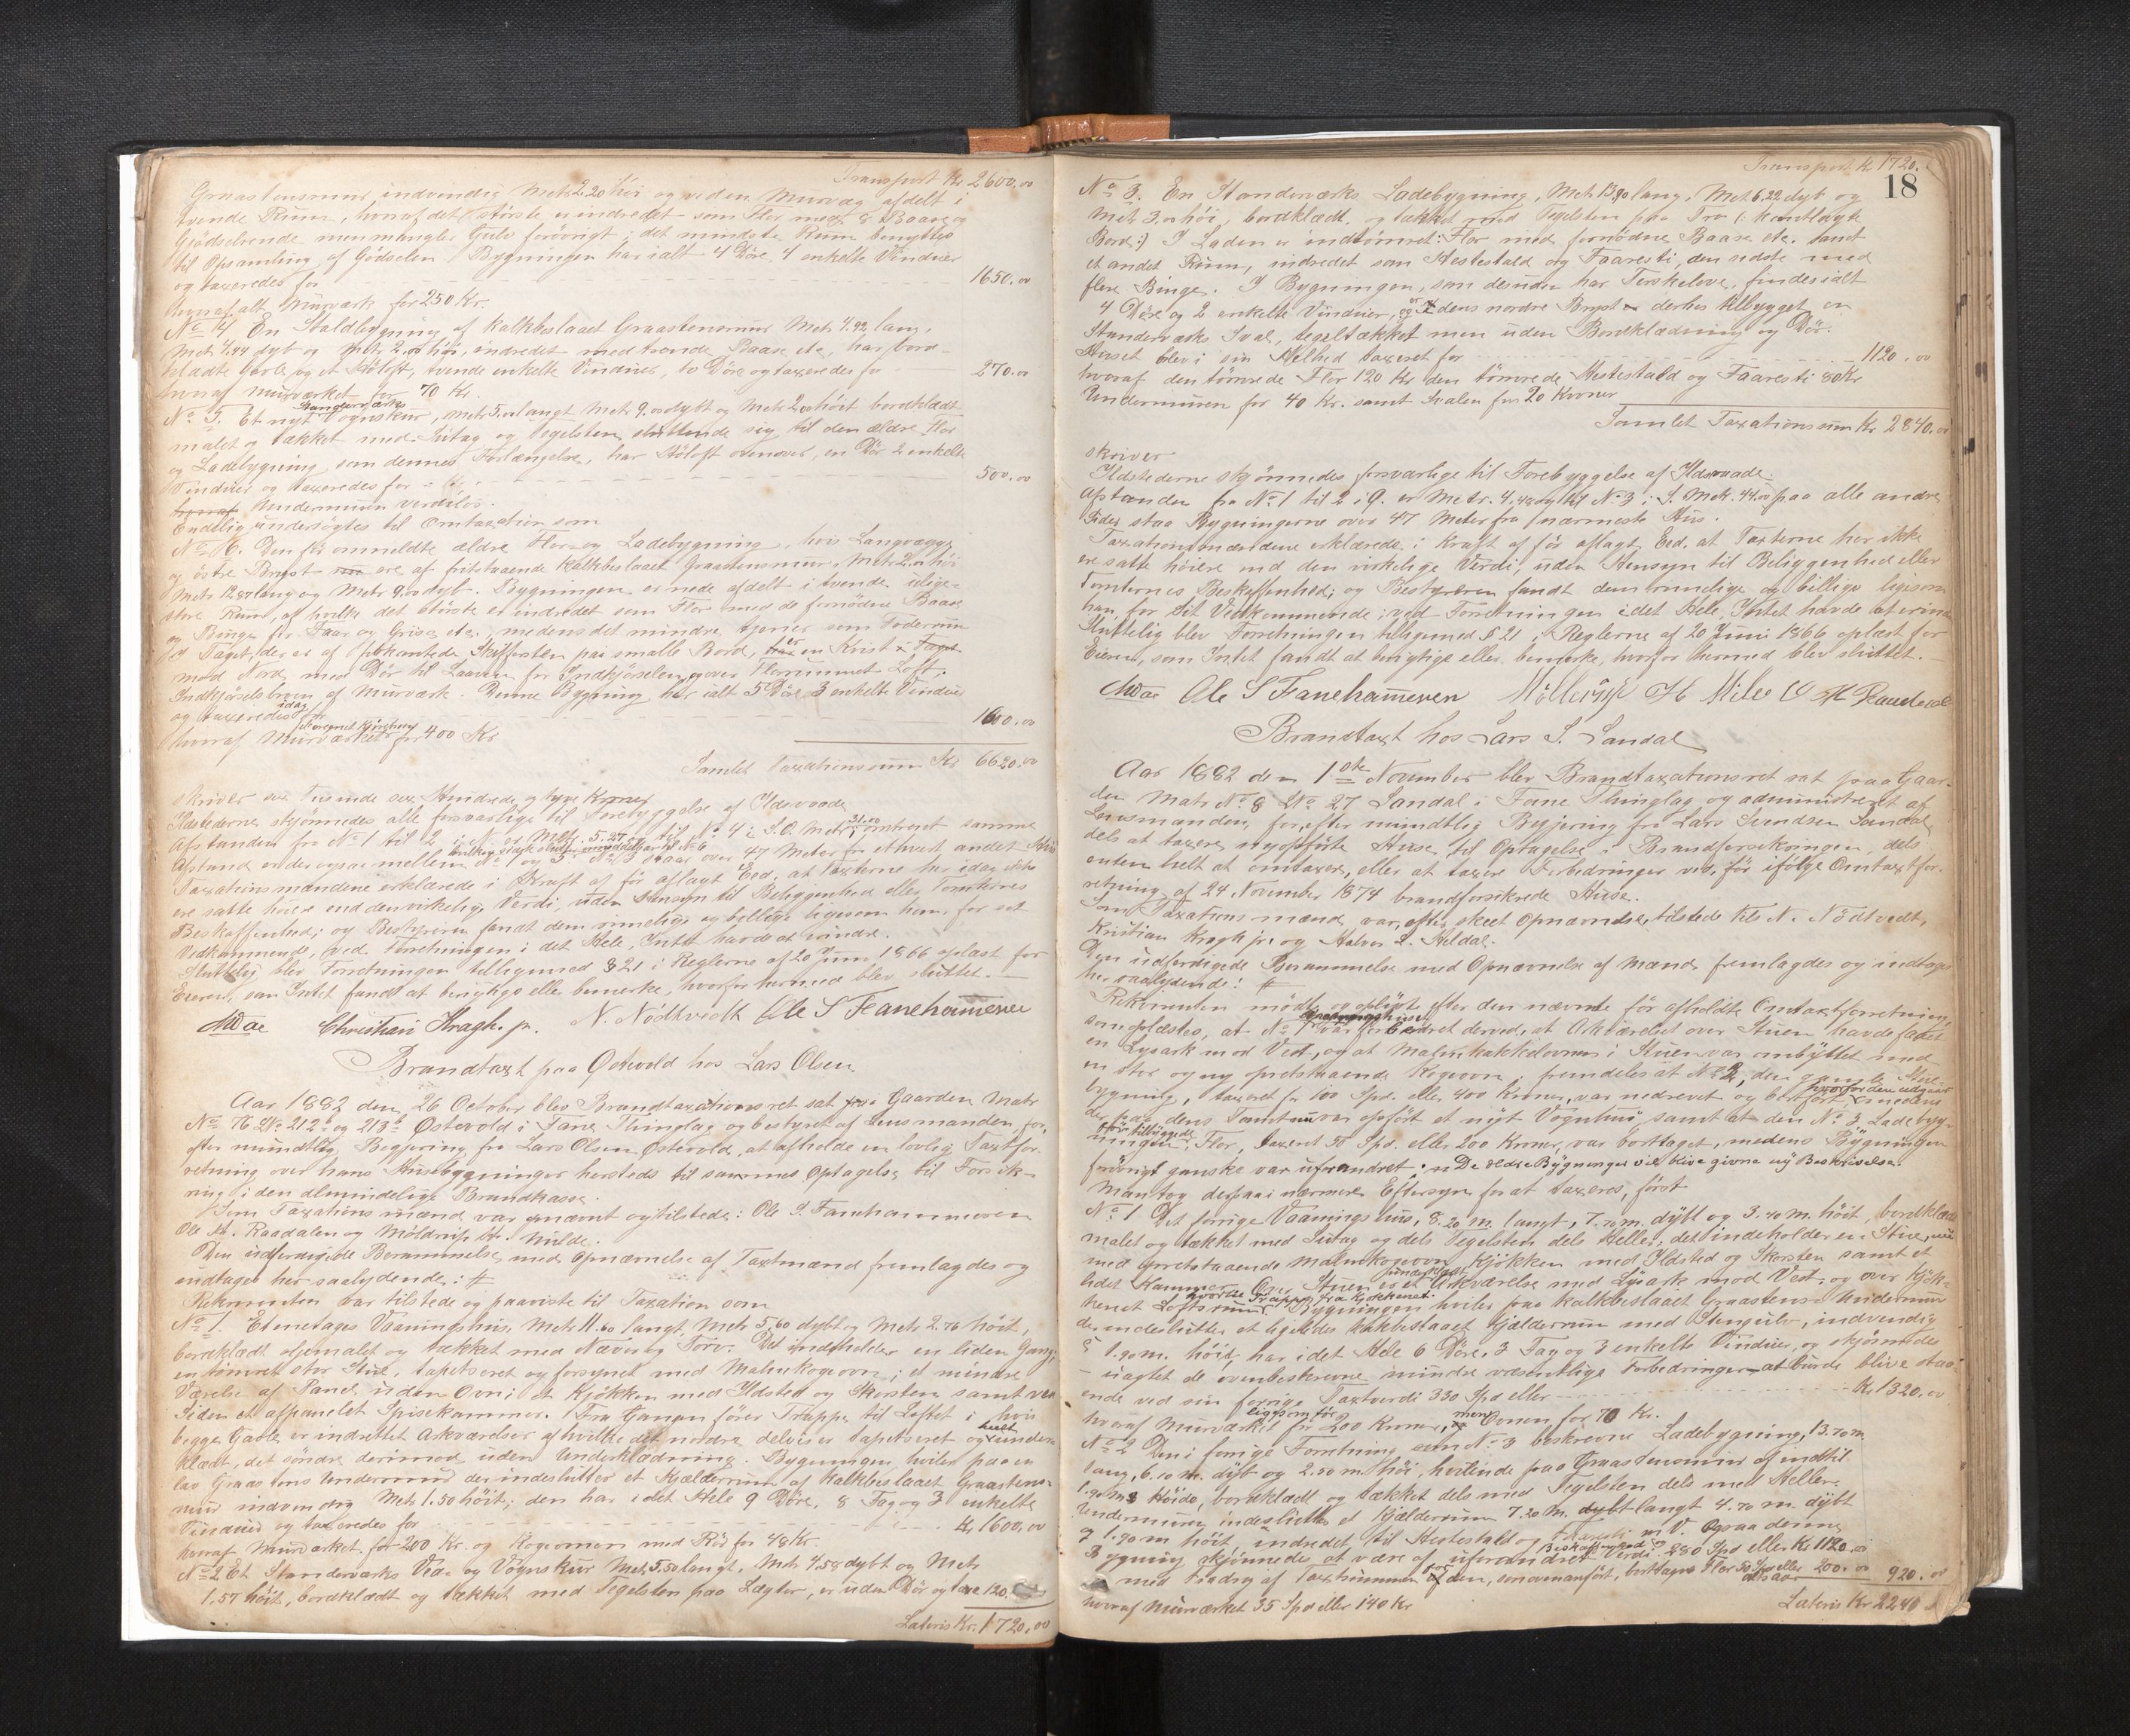 Transport Kr. 2600.00
Graastensmur, indvendig Metr. 2.20 høi og ved en Murvæg afdelt i
tvende Rum, hvoraf det største er indredet som Flor med 8 Baase og
Gjødselrende men mangler Gulv forøvrigt; det mindste Rum benyttes
til Opsamling af Gödselen. Bygningen har ialt 4 Döre, 4 enkelte Vinduer
og taxeredes for 1650.00
hvoraf alt Murværk for 250 Kr.
No 4 En Staldbygning af kalkbeslaaet Graastensmur Metr 4.92 lang,
Metr 4.94 dyb og Metr 2. høi, indredet med tvende Baase etc, har bord-
klædte Gavle og et Höloft, tvende enkelte Vinduer, to Döre og taxeredes for 270.00
hvoraf Murværket for 70 Kr.
No 5. Et nyt Standerværks Vognskur, Metr 5. langt Metr 9. dybt og Metr 2. høit bordklædt
malet og tækket med Sutag og Tegelsten, sluttende sig til den ældre Flor
og Ladebygning som dennes Forlængelse, har Höloft ovenover, en Dör 2 enkelte
Vinduer og taxeredes for 500.00
Undermuren verdilös.
Endelig undersøgtes til Omtaxation som
No 6. Den før ommeldte ældre Flor og Ladebygning, hvis Langvægge
og östre Bryst ere af fritstaaende kalkbeslaaet Graastensmur, Metr 2. høi
Metr 12.87 lang og Metr 9. dyb. Bygningen er nede afdelt i tvende ulige-
store Rum, af hvilke det største er indredet som Flor med de fornødne Baase
og Binge for Faar og Grise etc., medens det mindre tjener som Foderrum
I Taget, der er af Skifersten paa smalle Bord, er en Kvist i Taget
mod Nord med Dør til Laaven for Indkjørselen over Florrummet Loft.
Indkjørselsbroen af Murværk. Denne Bygning har ialt 5 Döre 3 enkelte Vinduer
og taxeredes idag for 1600.00
hvoraf Murværket for 400 Kr
Samlet Taxationssum Kr 6620.00
skriver sex Tusinde sex Hundrede og tyve Kroner
Ildstederne skjønnedes alle forsvarlige til Forebyggelse af Ildsvaade
Afstanden fra No 1 til 2 i er Metr. 5.27 og til No 4 i S.O. Metr 31.00 omtrent samme
Afstand er der ogsaa mellem No 1 og 5 No 3 staar over 47 Meter fra ethvert andet Hus
Taxationsmændene erklærede i Kraft af før aflagt Eed, at Taxterne her idag ikke
ere satte høiere end den virkelige Verdi, uden Hensyn til Beliggenhed eller Tomternes
Beskaffenhed; og Bestyreren fandt dem rimelige og billige ligesom han for sit
Vedkommende, ved Forretningen i det Hele, Intet havde at erindre.
Sluttelig blev Forretningen tilligemed § 21 i Reglerne af 20 Juni 1866 oplæst for
Eieren, som Intet fandt at berigtige eller bemerke, hvorfor hermed blev sluttet.
Christian Kragh jr. N. Nödtvedt Ole S Fanehammeren
Brandtaxt paa Østevold hos Lars Olsen.
Aar 1882 den 26 October blev Brandtaxationsret sat paa Gaarden Matr
No 76 No 212a og 213b Østevold i Fane Thinglag og bestyret af Lensmanden, for,
efter mundtlig Begjering fra Lars Olsen Østevold, at afholde en lovlig Taxtfor-
retning over hans Husebygninger hersteds til sammes Optagelse til Forsik-
ring i den almindelige Brandkasse.
Som Taxationsmænd var opnævnt og tilstede: Ole S. Fanehammeren
Ole M. Raadalen og Möldrup H. Milde.
Den udfærdigede Berammelse med Opnævnelse af Taxtmænd fremlagdes og
indtages her saalydende: #
Rekvirenten var tilstede og paaviste til Taxation som
No 1. Et enetages Vaaningshus, Metr 11.60 langt, Metr 5.60 dybt og Metr 2.76 høit,
bordklædt oljemalet og tækket med Næver og Torv. Det indeholder en liden Gang;
en tömret stor Stue, tapetseret og forsynet med Malmkogeovn; et mindre
Værelse af Panel uden Ovn; et Kjökken med Ildsted og Skorsten samt ved
Siden et afpanelet Spisekammer. Fra Gangen fører Trappe til Loftet i hvis
begge Gavle er indrettet Arkværelser af hvilke det nordre delvis er tapetseret og under-
klædt, det söndre derimod uden Underklædning. Bygningen hviler paa en
lav Graastens Undermur der indeslutter et Kjælderrum af kalkbeslaaet Graastens-
mur indvendig Metr 1.50 høit; den har idet Hele 9 Döre, 8 Fag og 3 enkelte
Vinduer og taxeredes for Kr. 1600.00
hvoraf Murværket for 200 Kr. og Kogeovnen med Rör for 48 Kr.
No 2 Et Standerværks Ved- og Vognskur Metr 5.50 langt, Metr 4.58 dybt og Metr
1.57 høit, bordklædt og tækket med Tegelsten paa Lægter, er uden Dör og taxe 120.
Lateris Kr. 1720.00
Transport Kr. 1720.
18
No 3. En Standerværks Ladebygning, Met 13.90 lang, Met 6.22 dyb og
Met 3. høi, bordklædt og tækket med Tegelsten paa Tro (: kantlagte
Bord:) I Laden er indtømret: Flor med fornødne Baase etc. samt
et andet Rum, indredet som Hestestald og Faaresti, den sidste med
flere Binge. I Bygningen, som desuden har Terskelove, findes ialt
4 Döre og 2 enkelte Vinduer, og dens nordre Bryst er derhos tilbygget en
Standerværks Sval, tegeltækket men uden Bordklædning og Dör.
Huset blev i sin Helhed taxeret for 1120.00
hvoraf den tömrede Flor 120 Kr den tömrede Hestestald og Faaresti 80 Kr
Undermuren for 40 Kr. samt Svalen for 20 Kroner
Samlet Taxationssum Kr 2840.00
skriver
Ildstederne skjønnedes forsvarlige til Forebyggelse af Ildsvaade.
Afstanden fra No 1 til 2 er Metr. 4. og til No 3 i S. Metr. 44.00 paa alle andre
Sider staa Bygningerne over 47 Meter fra nærmeste Hus.
Taxationsmændene erklærede i Kraft af før aflagt Eed, at Taxterne her ikke
ere satte høiere end den virkelige Verdi, uden Hensyn til Beliggenhed eller
Tomternes Beskaffenhed; og Bestyreren fandt dem rimelige og billige ligesom
han, for sit Vedkommende, ved Forretningen i det Hele, Intet havde at erindre
Sluttelig blev Forretningen tilligemed § 21 i Reglerne af 20 Juni 1866 oplæst for
Eieren, som Intet fandt at berigtige eller bemerke, hvorfor hermed blev sluttet.
Ole S Fanehammeren Möllerup H Milde O M Raadalen
Brandtaxt hos Lars S. Sandal
Aar 1882 den 1ste November blev Brandtaxationsret sat paa Gaar-
den Matr No 8 No 27 Sandal i Fane Thinglag og administreret af
Lensmanden, for, efter mundtlig Begjering fra Lars Svendsen Sandal,
dels at taxere nyopførte Huse, til Optagelse i Brandforsikringen, dels
enten helt at omtaxere, eller at taxere Forbedringer ved, før ifølge Omtaxtfor-
retning af 24. November 1874 brandforsikrede Huse.
Som Taxationsmænd var, efter skeet Opnævnelse, tilstede Nils N. Nödtvedt,
Kristian Kragh jr. og Halvor Heldal.
Den udfærdigede Berammelse med Opnævnelse af Mænd fremlagdes og indtages
her saalydende: #
Rekvirenten mødte og oplyste efter den nævnte før afholdte Omtaxtforretning
som oplæstes, at No 1 Vaaningshuset var forbedret derved, at Arkværelset over Stuen havde faaet
en Lysark mod Vest, og at Malmkakkelovnen i Stuen var ombyttet med
en stor og ny opretstaaende Kogeovn; fremdeles at No 2, den gamle Stue-
bygning, taxeret for 100 Spd. eller 400 Kroner, var nedrevet og bortført, hvorfor den udgaar medens
der paa dens Tomt nu var opført et nyt Vognhus samt at den No 3 Ladebyg-
ningen før tilliggende Flor, taxeret 50 Spd. eller 200 Kroner, var borttaget, medens Bygningen
forövrigt ganske var uforandret. De ældre Bygninger vil blive givne ny Beskrivelse.
Man tog derpaa i nærmere Eftersyn for at taxeres, først
No 1 Det forrige Vaaningshus, 8.20 m. langt, 7.70 m. dybt og 3.40 m. høit, bordklædt
malet og tækket med Sutag og dels Tegelsten dels Heller; det indeholder en Stue,
med opretstaaende Malmkogeovn, Kjökken med Ildsted og Skorsten samt et
lidet Kammer. Over Stuen er et Arkværelse med Lysark mod Vest, og over Kjök-
kenet Loftsrum, hvortil Trappe fra Kjökkenet. Bygningen hviler paa kalkbeslaaet Graastens Undermur
der indeslutter et ligeledes kalkbeslaaet Kjælderrum med Stengulv, indvendig
1.90 m. høit, har i det Hele 6 Döre, 3 Fag og 3 enkelte Vinduer, og skjönnedes
- uagtet de ovenbeskrevne mindre væsentlige Forbedringer - at burde blive staa-
ende ved sin forrige Taxtverdi 330 Spd eller Kr. 1320.00
hvoraf Murværket ligesom før for 200 Kroner, men Ovnen for 70 Kr.
No 2 Den i forrige Forretning som No 3 beskrevne Ladebygning, 13.70 m.
lang, 6.10 m. dyb og 2.50 m. høi, hvilende paa Graastensmur af indtil
1.90 m. Höide, bordklædt og tækket dels med Tegelsten dels med Heller.
Undermuren indeslutter et Kjælderrum 7.20 m. langt 4.70 m. dybt
og 1.90 m høit, indredet til Hestestald og Faaresti m V. Ogsaa denne
Bygning skjønnedes at være af uforandret Beskaffenhed og Verdi 280 Spd eller Kr. 1120.00
med Fradrag af Taxtsummen for den, som ovenanført, borttagne Flor 50 Spd eller 200.00 altsaa 920.00
hvoraf Murværket 35 Spd eller 140 Kr
Lateris Kr 2240